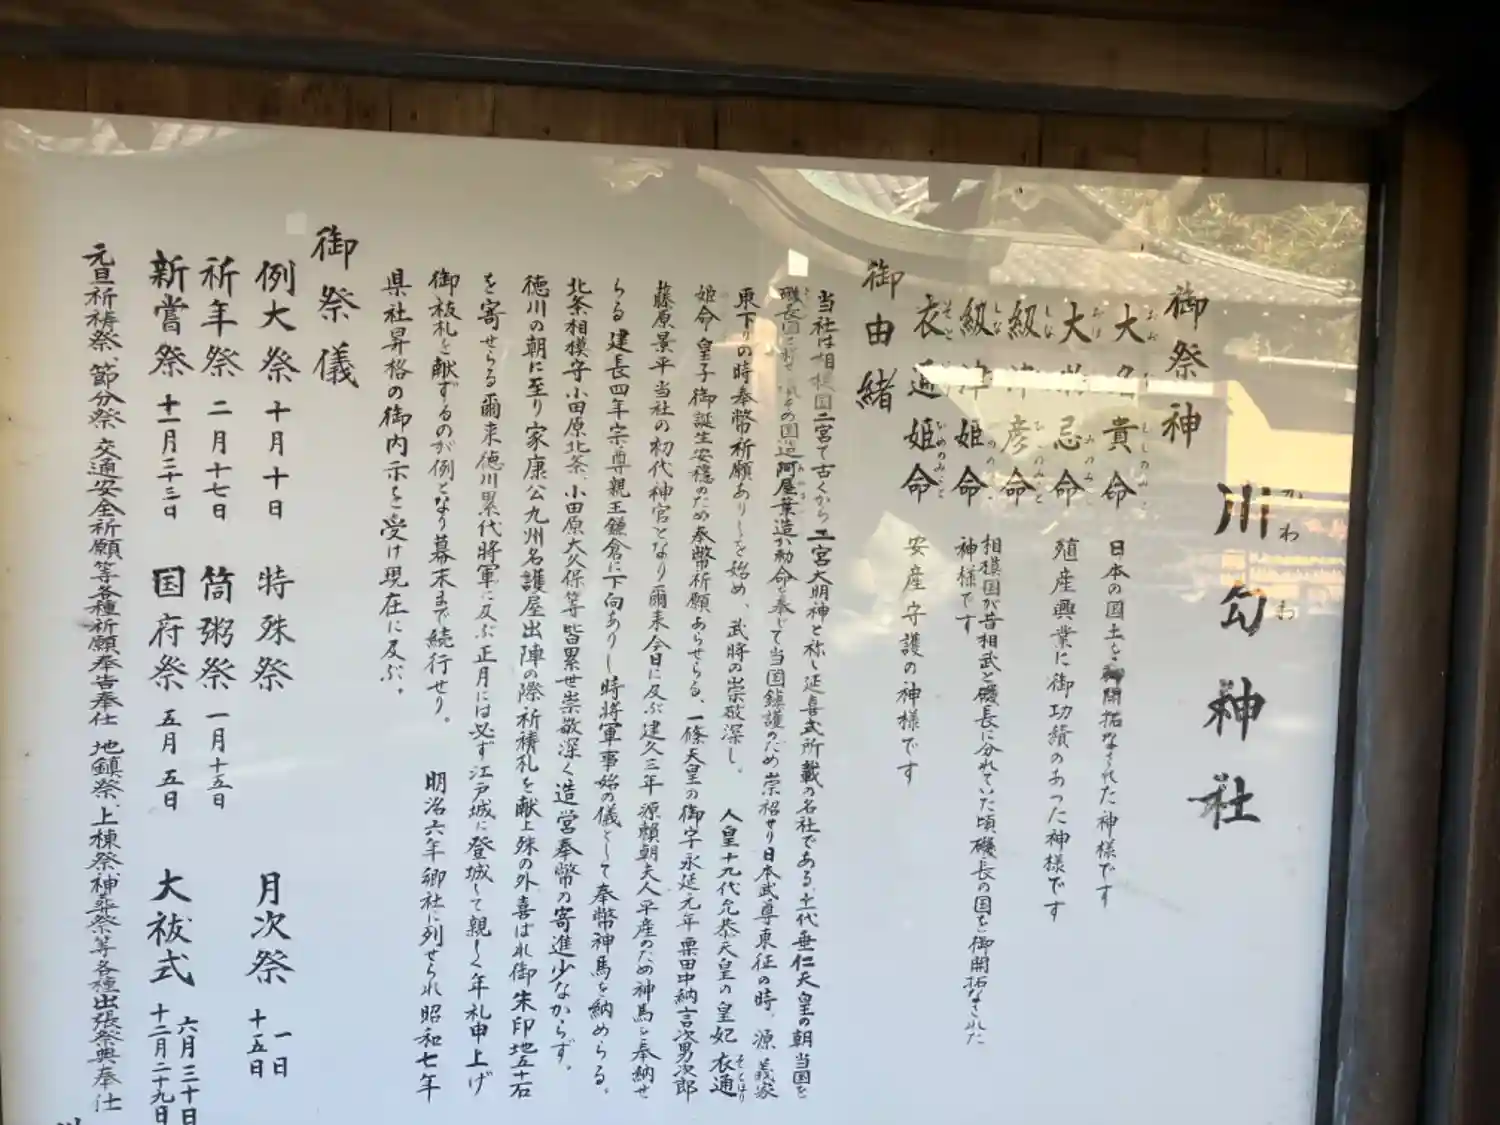 川勾神社
かわわ
御祭神
大名貴命
日本の国土を御開拓なされた神様です
大物忌命
殖産興業に御功績のあった神様です
級津彦命
級津姫命
相模国が昔相武と磯長に分れていた頃磯長の国を御開拓なされた
神様です
衣通姫命
安産守護の神様です
御由緒
当社は相模国二宮で古くから二宮大明神と称し延喜式所載の名社である、十一代垂仁天皇の朝当国を
磯長国と称せし その国造阿屋葉造が勅命を奉じて当国鎮護のため崇祀せり日本武尊東征の時、源義家
東下りの時奉幣祈願ありしを始め、武将の崇敬深し。 人皇十九代允恭天皇の皇妃衣通
そとほり
姫命皇子御誕生安穏のため奉幣祈願あらせらる、一條天皇の御宇永延元年粟田中納言次男次郎
藤原景平当社の初代神官となり爾来今日に及ぶ建久三年源頼朝夫人平産のため神馬を奉納せ
らる建長四年宗尊親王鎌倉に下向ありし時将軍事始の儀として奉幣神馬を納めらる。
北条相模守小田原北条、小田原大久保等皆累世崇敬深く造営奉幣の寄進少なからず。
徳川の朝に至り家康公九州名護屋出陣の際祈祷札を献上殊の外喜ばれ御朱印地五十石
を寄せらる爾来徳川累代将軍に及ぶ正月には必ず江戸城に登城して親しく年礼申上げ
御祓札を献ずるのが例となり幕末まで続行せり。 明治六年郷社に列せられ昭和七年
県社昇格の御内示を受け現在に及ぶ。
御祭儀
例大祭 十月十日 特殊祭 月次祭 一日 十五日
祈年祭 二月十七日 筒粥祭 一月十五日
新嘗祭 十一月二十三日 国府祭 五月五日 大祓式 六月三十日 十二月二十九日
元旦祈祷祭、節分祭 交通安全祈願等各種祈願奉告奉仕 地鎮祭、上棟祭神葬祭等各種出張祭典奉仕